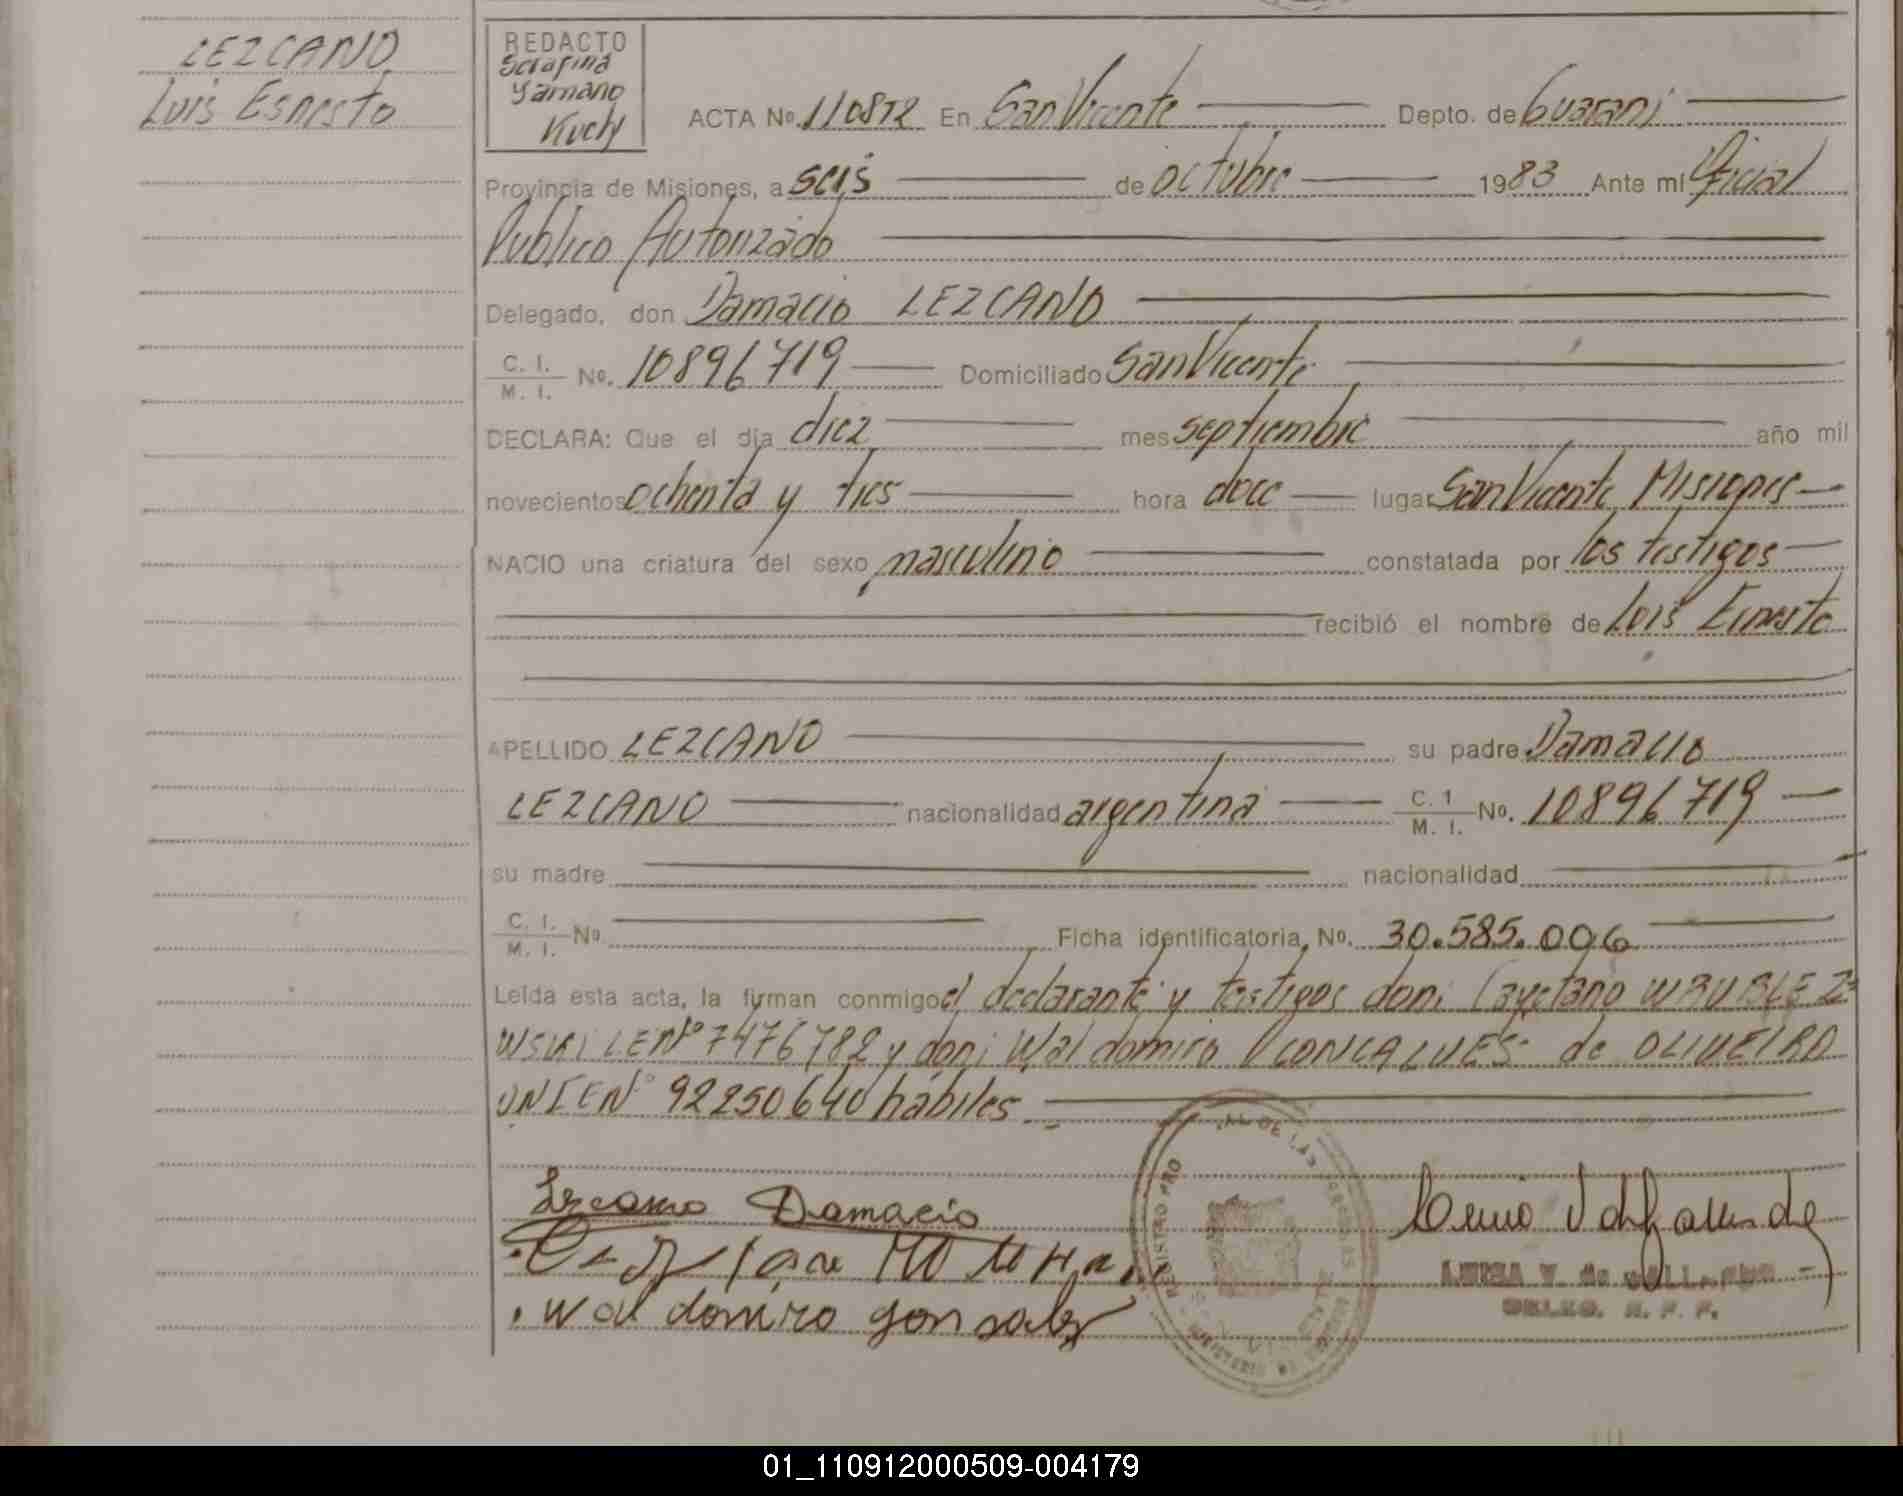 LEZCANO
Luis Esnesto
REDACTO
Serafina
Yamano
Kuchy
ACTA No. 110872 En San Vicente Depto. de Guarani
Provincia de Misiones, a seis de octubre 1983 Ante mi Oficial
Publico Autorizado
Delegado, don Damacio LEZCANO
C. I. M. I. No. 10896719 Domiciliado San Vicente
DECLARA: Que el día diez mes septiembre año mil
novecientos ochenta y tres hora doce lugar San Vicente Misiones
NACIO una criatura del sexo masculino constatada por los testigos
recibió el nombre de Luis Ernesto
APELLIDO LEZCANO su padre Damacio
LEZCANO nacionalidad argentina C. I M. I. No. 10896719
su madre nacionalidad
C. I. M. I. No. Ficha identificatoria, No. 30.585.006
Leída esta acta, la firman conmigo el declarante y testigos don: Cayetano
LE Nº 7476782 y don: Waldomiro GONCALVES de OLIVEIRA
Nº 92250640 hábiles
Lezcano Damacio
Waldomiro gonsalez
REGISTRO PRO AL DE LAS PERSONAS
LUISA V. de
DELEG. R. P. P.
01_110912000509-004179